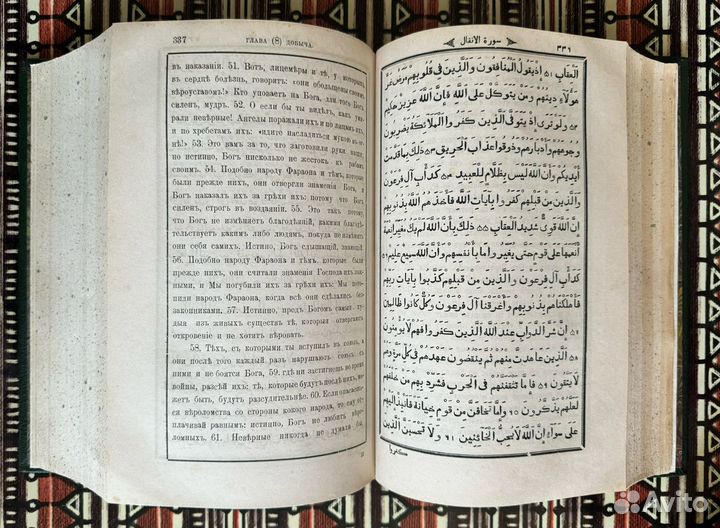 337 ГЛАВА (8) ДОБЫЧА.
въ наказаніи. 51. Вотъ, лицемѣры и тѣ, у которыхъ
въ сердцѣ болѣзнь, говорятъ: «они обольщены своимъ
вѣроуставомъ!» Кто уповаетъ на Бога, для того Богъ
силенъ, мудръ. 52. О если бы ты видѣлъ, какъ уми-
рали невѣрные! Ангелы поражали ихъ и по лицамъ ихъ,
и по хребетамъ ихъ: «идите насладиться мукою въ ог-
нѣ!» 53. Это вамъ за то, что заготовили руки ваши,
но истинно, Богъ нисколько не жестокъ къ рабамъ
своимъ. 54. Подобно народу Фараона и тѣмъ, которые
были прежде нихъ, они отвергли знаменія Бога, и
Богъ наказалъ ихъ за грѣхи ихъ: потому что Богъ
силенъ, строгъ въ воздаяніи. 55. Это такъ потому,
что Богъ не измѣняетъ благодѣяній, какими благодѣ-
тельствуетъ какимъ либо людямъ, покуда не измѣнятъ
они себя самихъ. Истинно, Богъ слышащій, знающій.
56. Подобно народу Фараона и тѣмъ, которые были
прежде нихъ, они считали знаменія Господа ихъ лож-
ными, и Мы погубили ихъ за грѣхи ихъ: Мы пото-
пили народъ Фараона, когда всѣ они сдѣлались без-
законниками. 57. Истинно, предъ Богомъ самыя ху-
дыя изъ живыхъ существъ тѣ, которыя отвергаютъ
откровеніе и не хотятъ вѣровать.
58. Тѣхъ, съ которыми ты вступилъ въ союзъ, и
они послѣ того каждый разъ нарушаютъ союзъ съ
ними и не боятся Бога, 59. гдѣ ни застигнешь во время
войны, разсѣй ихъ: тѣ, которые будутъ послѣ нихъ, мо-
жетъ быть, будутъ разсудительнѣе. 60. Если опасаешь-
ся вѣроломства со стороны какого народа, то ему от-
плачивай равнымъ: истинно, Богъ не любитъ вѣро-
ломныхъ. 61. Невѣрные никогда не думали бы,
سورة الانفال ٣٣٦
العقاب ٥١ اذ يقول المنافقون والذين فى قلوبهم مرض غر
هؤلاء دينهم ومن يتوكل على الله فان الله عزيز حكيم
٥٢ ولو ترى اذ يتوفى الذين كفروا الملائكة يضربون
وجوههم وادبارهم وذوقوا عذاب الحريق ٥٣ ذلك بما قدمت
ايديكم وان الله ليس بظلام للعبيد ٥٤ كداب آل فرعون
والذين من قبلهم كفروا بايات الله فاخذهم الله بذنوبهم
ان الله قوى شديد العقاب ٥٥ ذلك بان الله لم يك مغيرا نعمة
انعمها على قوم حتى يغيروا ما بانفسهم وان الله سميع عليم ٥٦
كداب آل فرعون والذين من قبلهم كذبوا بايات ربهم
فاهلكناهم بذنوبهم واغرقنا آل فرعون وكل كانوا ظالمين
٥٧ ان شر الدواب عند الله الذين كفروا فهم لا يؤمنون
٥٨ الذين عاهدت منهم ثم ينقضون عهدهم فى كل مرة وهم
لا يتقون ٥٩ فاما تثقفنهم فى الحرب فشرد بهم من خلفهم
لعلهم يذكرون ٦٠ واما تخافن من قوم خيانة فانبذ اليهم
على سواء ان الله لا يحب الخائنين ٦١ ولا تحسبن الذين
كفروا
Avito